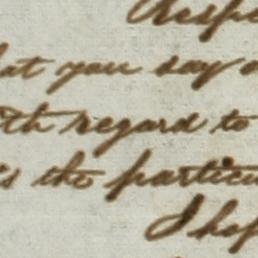 Respe
at you say
th regard to
's the particu
I hop